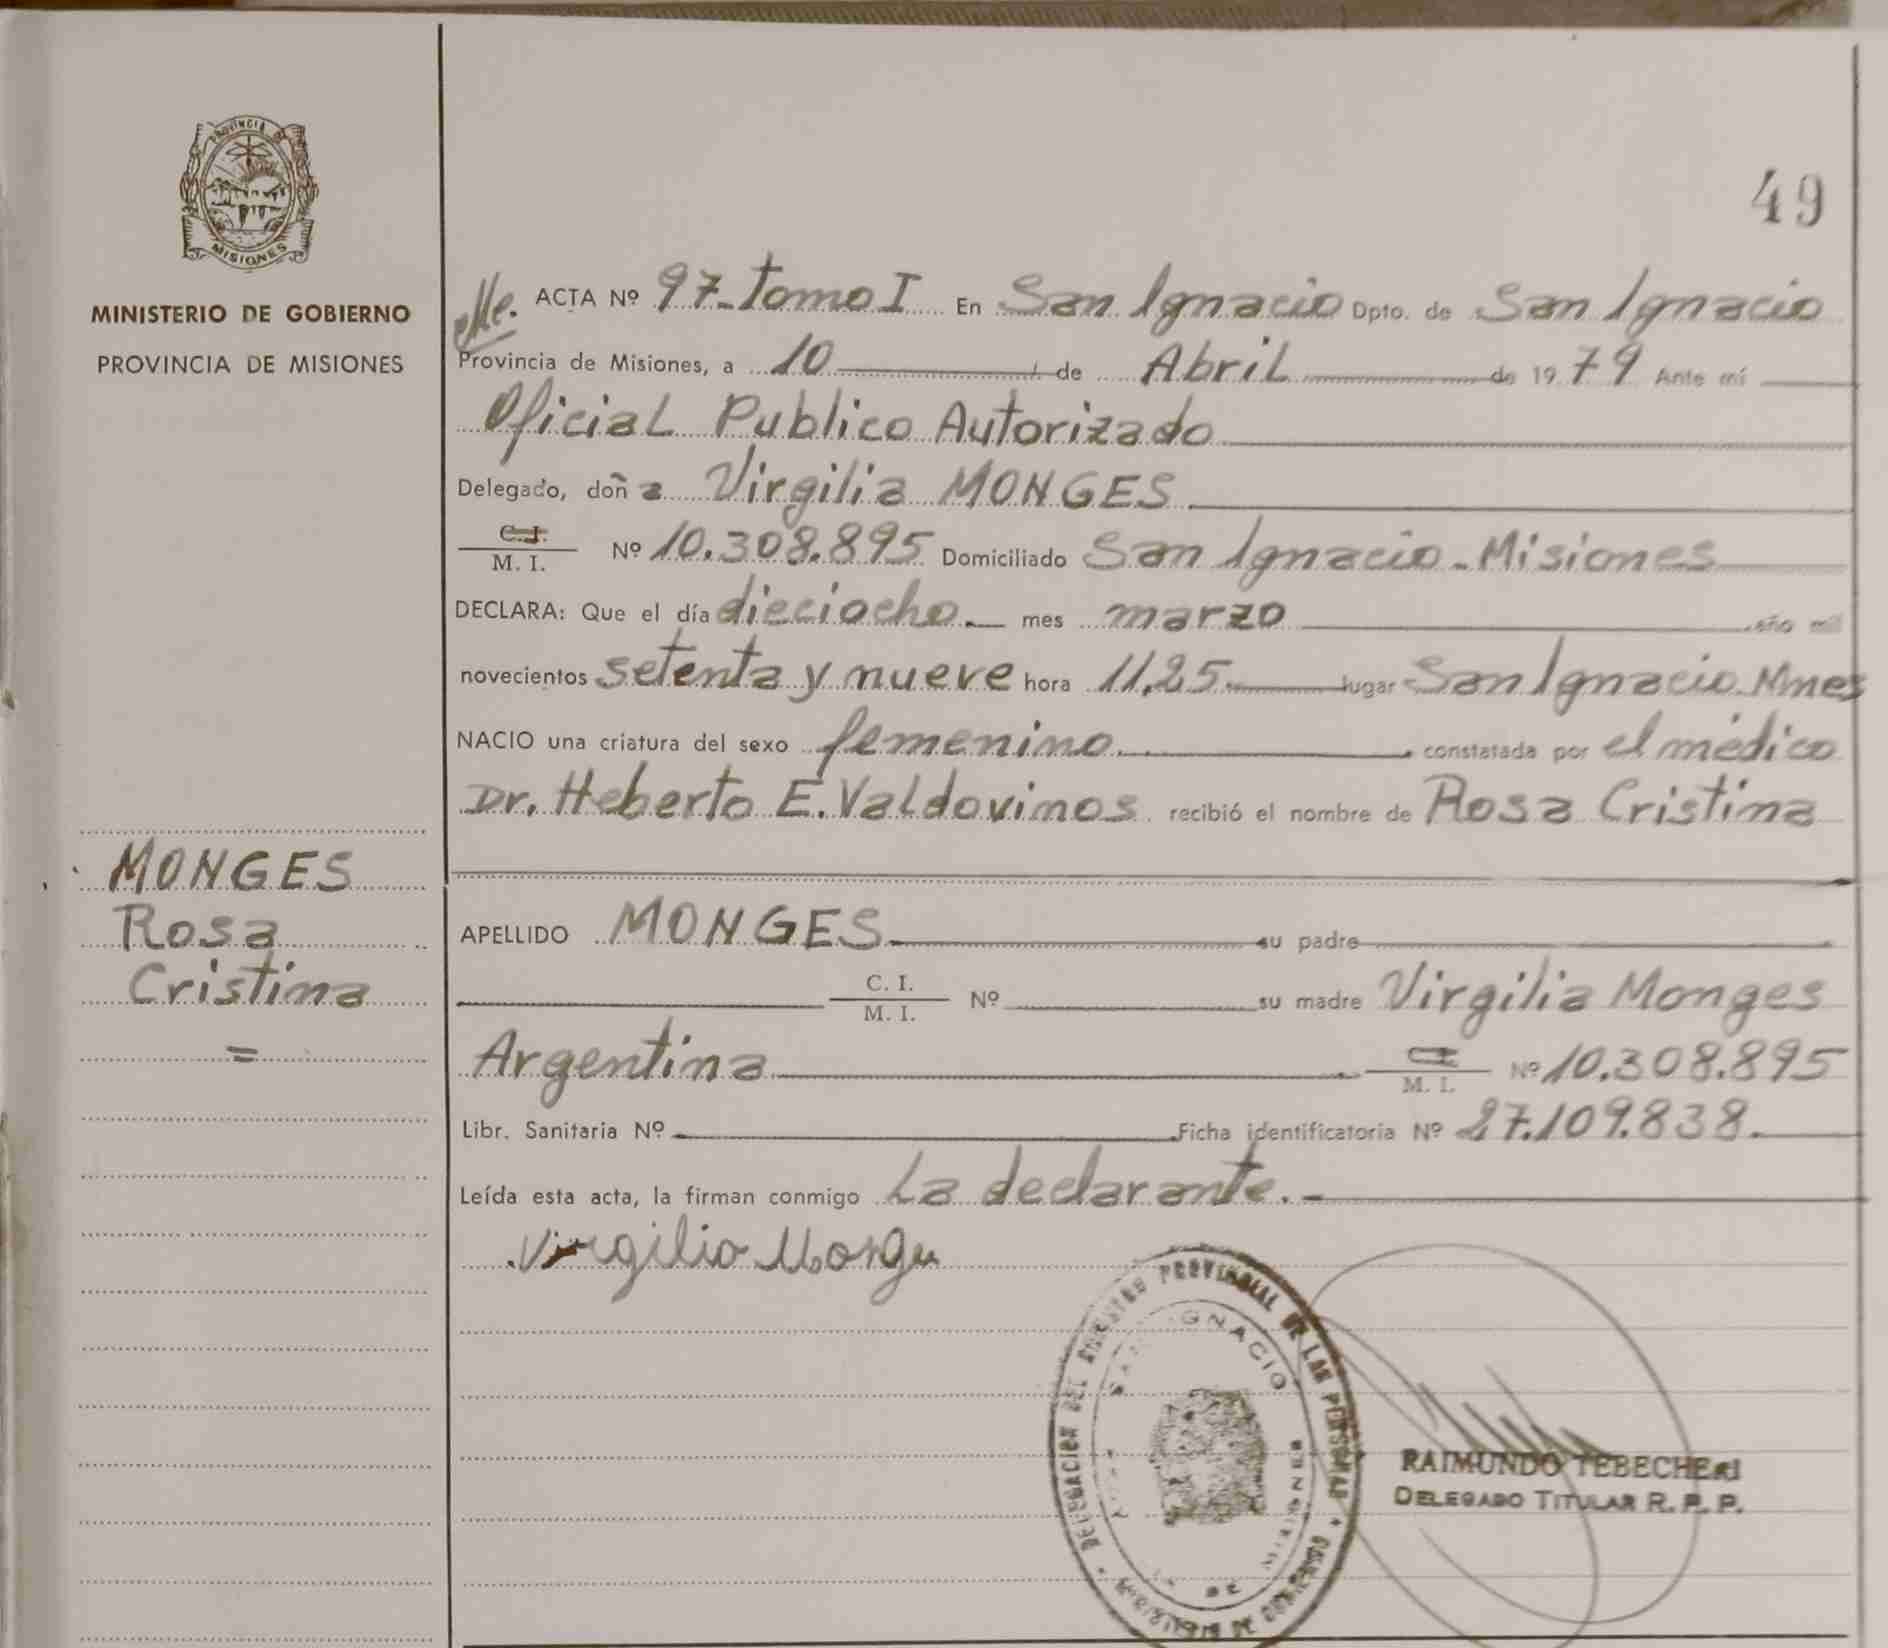 PROVINCIA DE
MISIONES
MINISTERIO DE GOBIERNO
PROVINCIA DE MISIONES
MONGES
Rosa
Cristina
=
49
ACTA Nº 97-Tomo I En San Ignacio Dpto. de San Ignacio
Provincia de Misiones, a 10 de Abril de 1979 Ante mí
Oficial Publico Autorizado
Delegado, doña Virgilia MONGES
C.I.
M. I. Nº 10.308.895 Domiciliado San Ignacio-Misiones
DECLARA: Que el día dieciocho. mes marzo año mil
novecientos setenta y nueve hora 11,25 lugar San Ignacio Mnes
NACIO una criatura del sexo femenino. constatada por el médico
Dr. Heberto E. Valdovinos recibió el nombre de Rosa Cristina
APELLIDO MONGES. su padre
C. I.
M. I. Nº su madre Virgilia Monges
Argentina C.I.
M. I. Nº 10.308.895
Libr. Sanitaria Nº Ficha identificatoria Nº 27.109.838.
Leída esta acta, la firman conmigo La declarante.-
Virgilia Monges
DELEGACION DEL REGISTRO PROVINCIAL DE LAS PERSONAS
MINISTERIO DE GOBIERNO
SAN IGNACIO
MISIONES
RAIMUNDO TEBECHERI
DELEGADO TITULAR R. P. P.